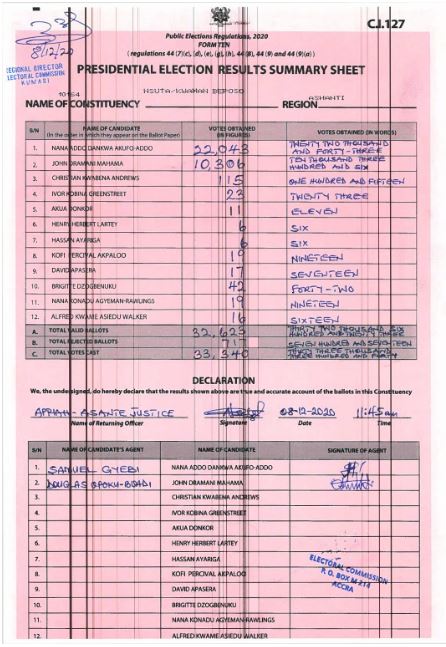 8/12/20
C.I.127
Public Elections Regulations, 2020
FORM TEN
(regulations 44 (7)(c), (d), (e), (g), (h), 44 (8), 44 (9) and 44 (9)(a))
REGIONAL DIRECTOR
ELECTORAL COMMISSION
KUMASI
PRESIDENTIAL ELECTION RESULTS SUMMARY SHEET
NSUTA-KWAMAN BEPOSO
ASHANTI
NAME OF CONSTITUENCY REGION
S/N NAME OF CANDIDATE (In the order in which they appear on the Ballot Paper) VOTES OBTAINED (IN FIGURES) VOTES OBTAINED (IN WORDS)
1. NANA ADDO DANKWA AKUFO-ADDO 22,043 TWENTY TWO THOUSAND AND FORTY-THREE
2. JOHN DRAMANI MAHAMA 10,306 TEN THOUSAND THREE HUNDRED AND SIX
3. CHRISTIAN KWABENA ANDREWS 115 ONE HUNDRED AND FIFTEEN
4. IVOR KOBINA GREENSTREET 23 TWENTY THREE
5. AKUA DONKOR 11 ELEVEN
6. HENRY HERBERT LARTEY 6 SIX
7. HASSAN AYARIGA 6 SIX
8. KOFI PERCIVAL AKPALOO 19 NINETEEN
9. DAVID APASERA 17 SEVENTEEN
10. BRIGITTE DZOGBENUKU 42 FORTY-TWO
11. NANA KONADU AGYEMAN-RAWLINGS 19 NINETEEN
12. ALFRED KWAME ASIEDU WALKER 16 SIXTEEN
A. TOTAL VALID BALLOTS 32,623 THIRTY TWO THOUSAND SIX HUNDRED AND TWENTY THREE
B. TOTAL REJECTED BALLOTS 717 SEVEN HUNDRED AND SEVENTEEN
C. TOTAL VOTES CAST 33,340 THIRTY THREE THOUSAND THREE HUNDRED AND FORTY
DECLARATION
We, the undersigned, do hereby declare that the results shown above are true and accurate account of the ballots in this Constituency
APPIAH-ASANTE JUSTICE 08-12-2020 11:45am
Name of Returning Officer Signature Date Time
S/N NAME OF CANDIDATE'S AGENT NAME OF CANDIDATE SIGNATURE OF AGENT
1. SAMUEL GYEBI NANA ADDO DANKWA AKUFO-ADDO
2. DOUGLAS OPOKU-BOADI JOHN DRAMANI MAHAMA
3. CHRISTIAN KWABENA ANDREWS
4. IVOR KOBINA GREENSTREET
5. AKUA DONKOR
6. HENRY HERBERT LARTEY
7. HASSAN AYARIGA
8. KOFI PERCIVAL AKPALOO
9. DAVID APASERA
10. BRIGITTE DZOGBENUKU
11. NANA KONADU AGYEMAN-RAWLINGS
12. ALFRED KWAME ASIEDU WALKER
ELECTORAL COMMISSION
P. O. BOX M 214
ACCRA